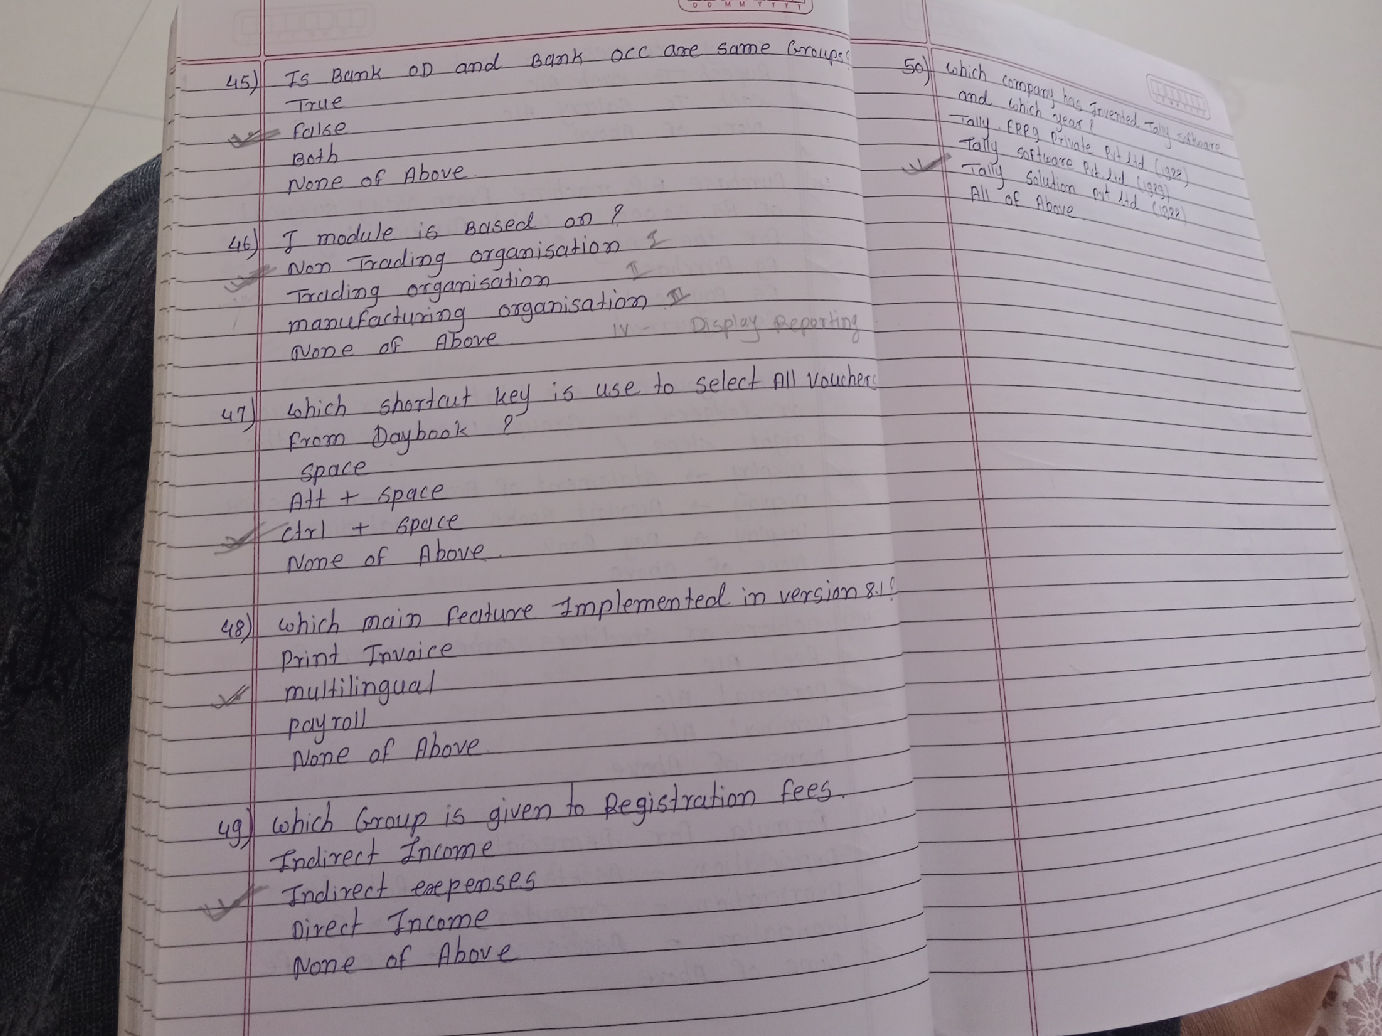 D D M M Y Y Y Y
45) Is Bank OD and Bank OCC are same Groups
True
False
Both
None of Above
46) I module is Based on ?
Non Trading organisation I
Trading organisation II
manufacturing organisation III
None of Above IV - Display Reporting
47) which shortcut key is use to select All Vouchers
from Daybook ?
Space
Alt + Space
Ctrl + Space
None of Above
48) which main feature Implemented in version 8.1?
Print Invoice
multilingual
payroll
None of Above
49) which Group is given to Registration fees.
Indirect Income
Indirect expenses
Direct Income
None of Above
50) which company has Invented Tally software
and which year ?
Tally. ERP9 Private Pvt Ltd
Tally software Pvt Ltd
Tally solution Pvt Ltd
All of Above